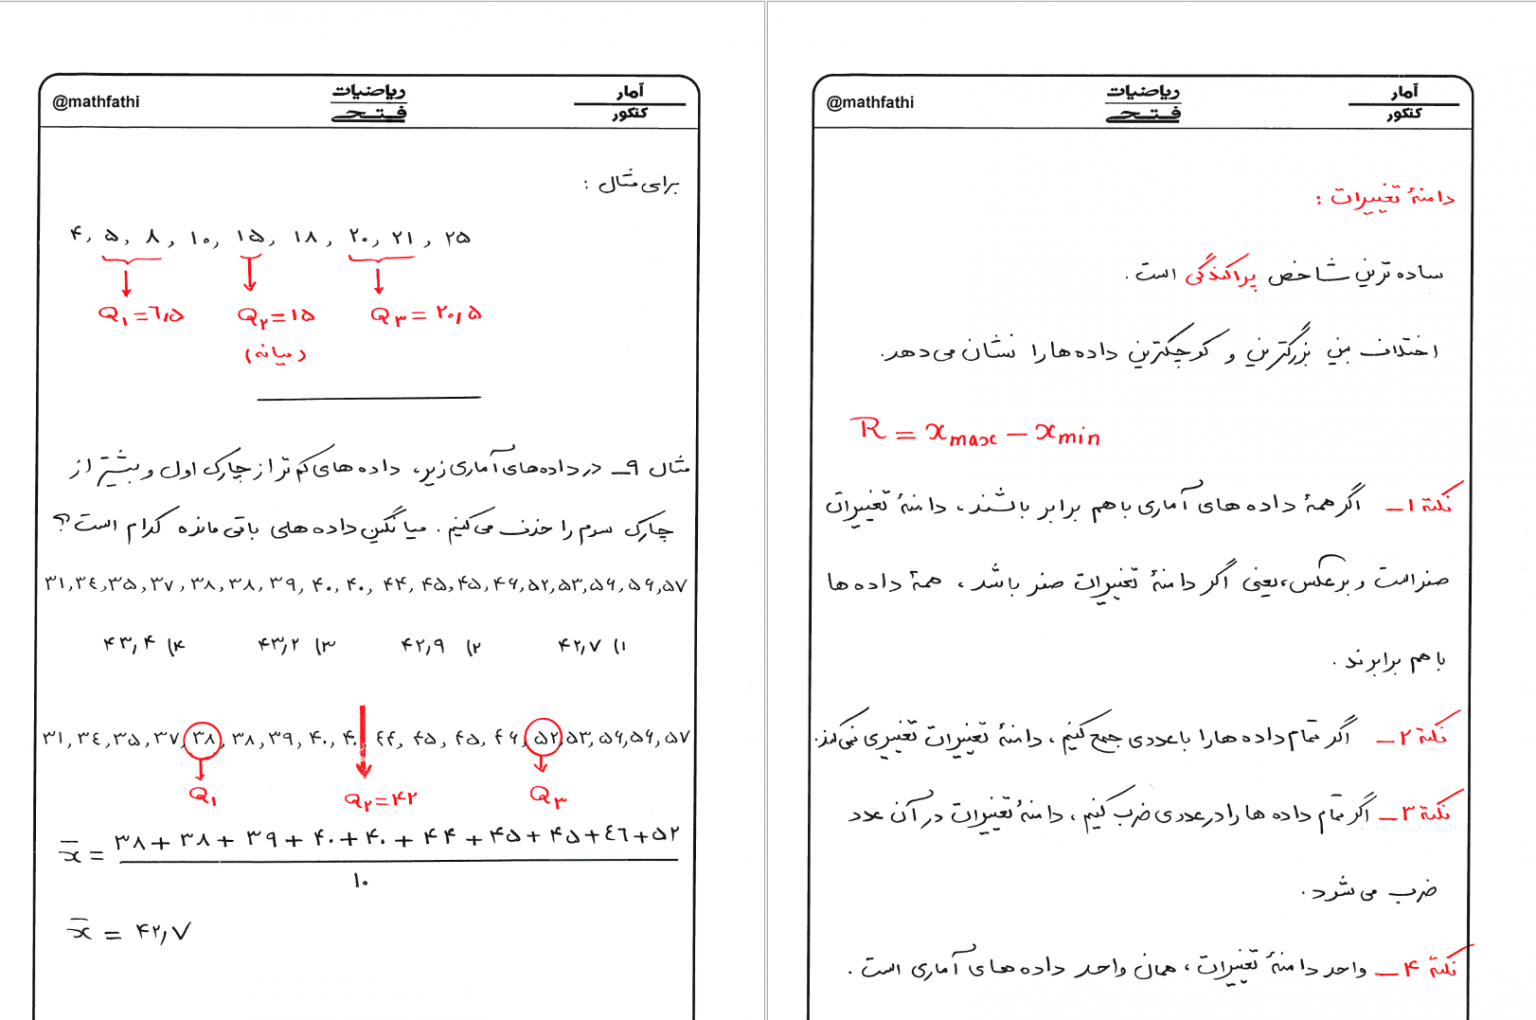 آمار
ریاضیات
@mathfathi
کنکور
فتحی
دامنهٔ تغییرات :
ساده ترین شاخص پراکندگی است .
اختلاف بین بزرگترین و کوچکترین داده ها را نشان می دهد.
R = x max – x min
نکتهٔ ۱ – اگر همهٔ داده های آماری با هم برابر باشند ، دامنهٔ تغییرات
صفر است و برعکس، یعنی اگر دامنهٔ تغییرات صفر باشد ، همهٔ داده ها
با هم برابرند .
نکتهٔ ۲ – اگر تمام داده ها را با عددی جمع کنیم ، دامنهٔ تغییرات تغییری نمی کند.
نکتهٔ ۳ – اگر تمام داده ها را در عددی ضرب کنیم ، دامنهٔ تغییرات در آن عدد
ضرب می شود .
نکتهٔ ۴ – واحد دامنهٔ تغییرات ، همان واحد داده های آماری است .
آمار
ریاضیات
@mathfathi
کنکور
فتحی
برای مثال :
۴, ۵, ۸, ۱۰, ۱۵, ۱۸, ۲۰, ۲۱, ۲۵
Q۱ = ۶٫۵ Q۲ = ۱۵ Q۳ = ۲۰٫۵
(میانه)
مثال ۹ – در داده های آماری زیر، داده های کم تر از چارک اول و بیشتر از
چارک سوم را حذف می کنیم . میانگین داده های باقی مانده کدام است؟
۳۱,۳۴,۳۵,۳۷,۳۸,۳۸,۳۹,۴۰,۴۰,۴۴,۴۵,۴۵,۴۶,۵۲,۵۳,۵۶,۵۶,۵۷
۱) ۴۲٫۷ ۲) ۴۲٫۹ ۳) ۴۳٫۲ ۴) ۴۳٫۴
۳۱,۳۴,۳۵,۳۷,۳۸,۳۸,۳۹,۴۰,۴۰ ۴۴,۴۵,۴۵,۴۶,۵۲,۵۳,۵۶,۵۶,۵۷
Q۱ Q۲ = ۴۲ Q۳
۳۸ + ۳۸ + ۳۹ + ۴۰ + ۴۰ + ۴۴ + ۴۵ + ۴۵ + ۴۶ + ۵۲
x̄ =
۱۰
x̄ = ۴۲٫۷